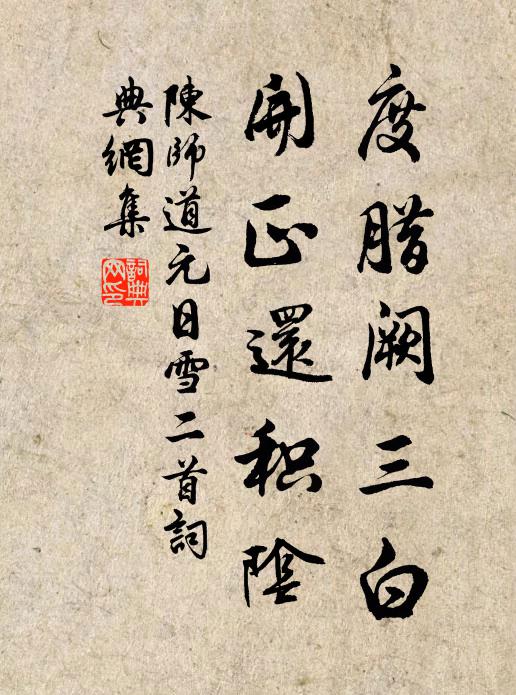 度腊阙三白
開正還积陰
陳師道元日雪二首詞
典網集
詞典网印